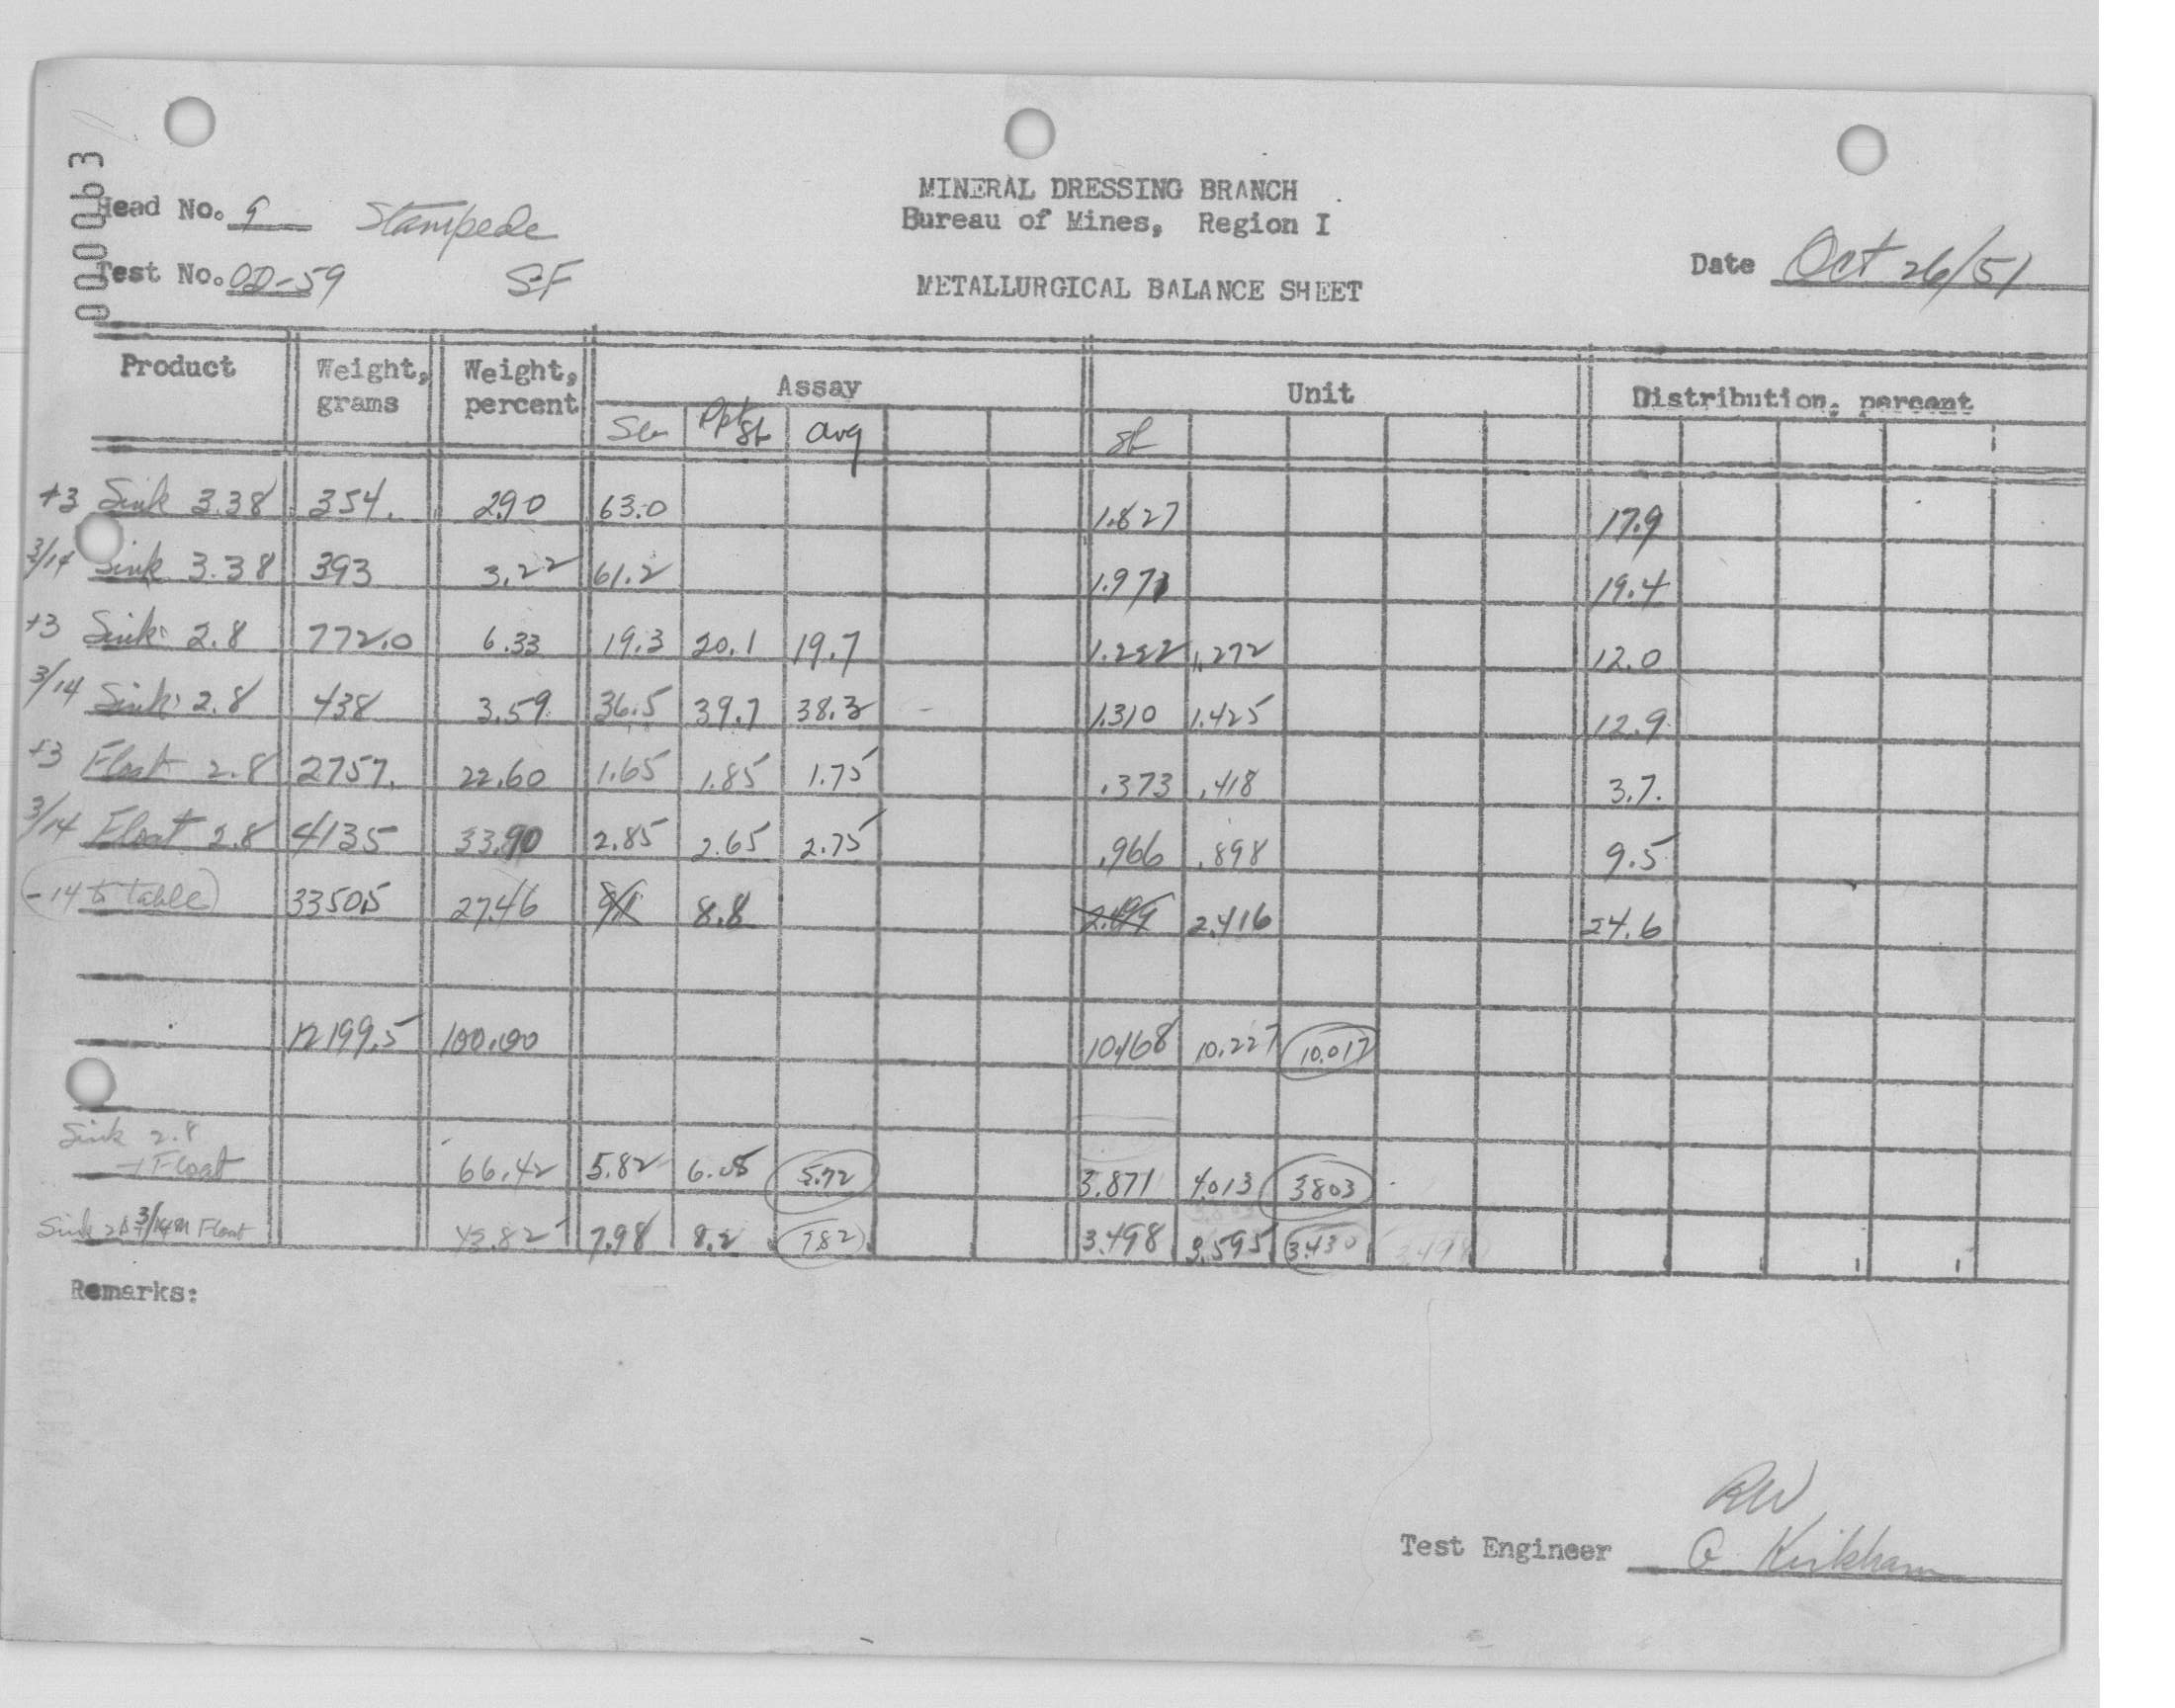 000063
MINERAL DRESSING BRANCH
Head No. 9 Stampede Bureau of Mines, Region I
Test No. OD-59 S-F METALLURGICAL BALANCE SHEET Date Oct 26/51
Product Weight, grams Weight, percent Assay Unit Distribution, percent
Sb Ppt Sb avg Sb
+3 Sink 3.38 354. 2.90 63.0 1.827 17.9
3/14 Sink 3.38 393 3.22 61.2 1.971 19.4
+3 Sink 2.8 772.0 6.33 19.3 20.1 19.7 1.222 1.272 12.0
3/14 Sink 2.8 438 3.59 36.5 39.7 38.3 1.310 1.425 12.9
+3 Float 2.8 2757. 22.60 1.65 1.85 1.75 .373 .418 3.7
3/14 Float 2.8 4135 33.90 2.85 2.65 2.75 .966 .898 9.5
-14 to table 3350.5 27.46 9.1 8.8 2.499 2.416 24.6
12199.5 100.00 10.168 10.227 10.017
Sink 2.8
+ Float 66.42 5.82 6.05 5.72 3.871 4.013 3.803
Sink 3/14m Float 43.82 7.98 8.2 7.82 3.498 3.595 3.430 3.498
Remarks:
RW
Test Engineer O. Kirkham